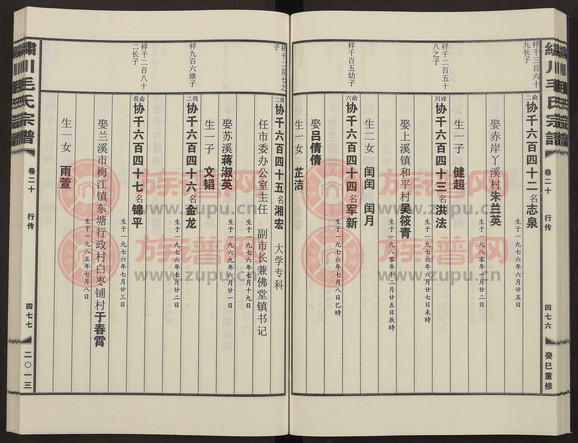 繡川毛氏宗譜
卷二十
行传
四七六
癸巳重修
祥千三百六十九长子
俞二协千六百四十二名志泉
生于一九七六年六月廿一日
娶赤岸丫溪村朱兰英
生一子 健超
祥千二百五十八之子
祥川协千六百四十三名洪法
生于一九七六年六月廿七日未时
娶上溪镇和平村吴筱青
生于一九八〇年十二月廿五日辰时
生二女 闰闰 闰月
祥千百五幼子
俞六协千六百四十四名军新
生于一九七六年七月八日巳时
娶吕倩倩
生于一九八〇年二月二十日
生一女 芷洁
祥千二百七之子
尚二协千六百四十五名湘宏 大学专科
任市委办公室主任 副市长兼佛堂镇书记
生于一九七六年七月十九日
娶苏溪蒋淑英
生一子 文韬
祥九百六继子
尚二协千六百四十六名金龙
生于一九七六年七月廿二日
祥千二百八十二长子
俞长协千六百四十七名锦平
生于一九七六年七月廿三日
娶兰溪市梅江镇东塘行政村白枣铺村于春霄
生于一九八五年七月八日
生一女 雨萱
繡川毛氏宗譜
卷二十
行传
四七七
二〇一三
族谱网
www.zupu.cn
族谱网
www.zupu.cn